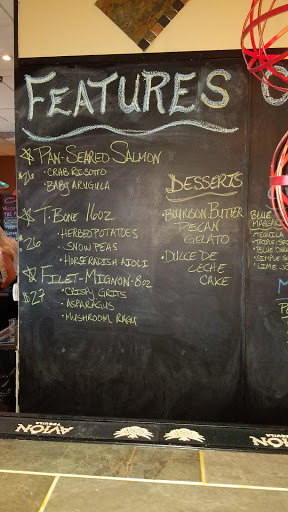 FEATURES
PAN-SEARED SALMON
$26
• CRAB RISOTTO
BABY ARUGULA
T-BONE 16oz
$26
• HERBED POTATOES
• SNOW PEAS
• HORSERADISH AIOLI
FILET-MIGNON-8oz
$27
• CRISPY GRITS
• ASPARAGUS
• MUSHROOM RAGU
DESSERTS
• BOURBON BUTTER
PECAN
GELATO
• DULCE DE
LECHE
CAKE
BLUE
AVIÓN
AVIÓN